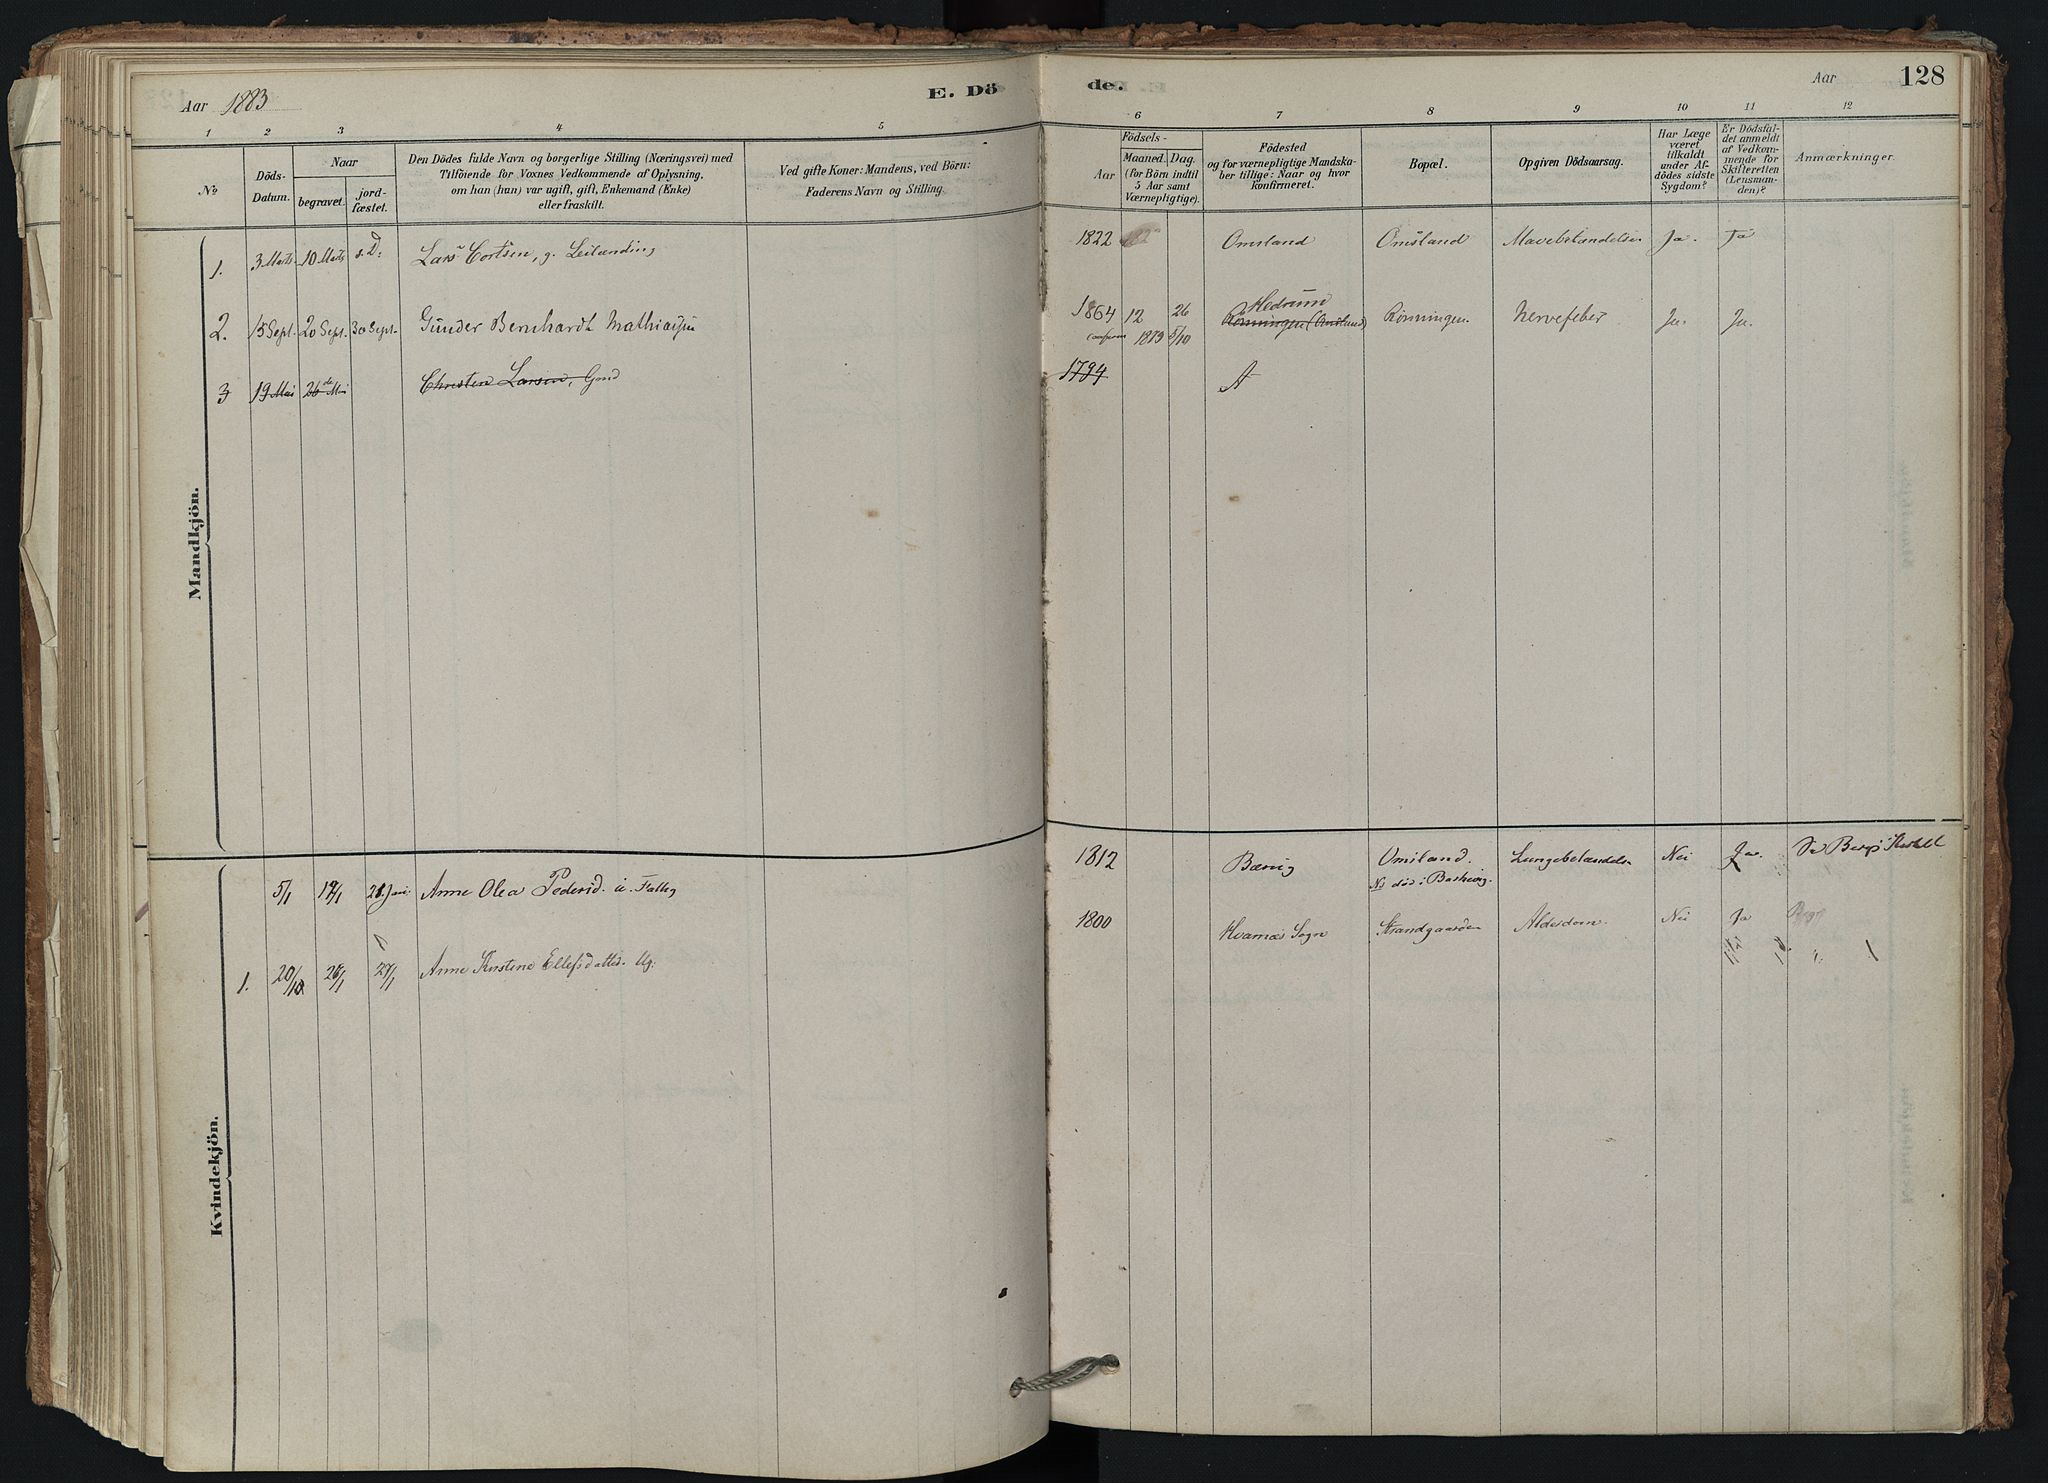 Aar 1883
E. Dö
de.
Aar
128
1 2 3 4 5
6 7 8 9 10 11 12
No
Döds-
Datum.
Naar
begravet.
jord-
fæstet.
Den Dödes fulde Navn og borgerlige Stilling (Næringsvei) med
Tilföiende for Voxnes Vedkommende af Oplysning,
om han (hun) var ugift, gift, Enkemand (Enke)
eller fraskilt.
Ved gifte Koner: Mandens, ved Börn:
Faderens Navn og Stilling.
Födsels-
Aar
Maaned. Dag.
(for Börn indtil
5 Aar samt
Værnepligtige).
Födested
og for værnepligtige Mandska-
ber tillige: Naar og hvor
konfirmeret.
Bopæl.
Opgiven Dödsaarsag.
Har Læge
været
tilkaldt
under Af-
dödes sidste
Sygdom?
Er Dödsfal-
det anmeldt
af Vedkom-
mende for
Skifteretten
(Lensman-
den)?
Anmærkninger.
Mandkjön.
1. 3 Marts. 10 Marts s. D. Lars Cortsen, g. Leilænding
1822 Omsland Omsland Mavebetændelse Ja. Ja
2. 15 Sept. 20 Sept. 30 Sept. Gunder Bernhardt Mathiassen
1864 12 26 Hedrum
Rönningen (Omsland) Rönningen. Nervefeber Ja. Ja.
1879 5/10
3 19 Mai 26de Mai Christen Larsen, Gmd
1794 A
Kvindekjön.
5/1 Anne Olea Pedersd. u. Fattig
1812 Omsland. Lungebetændelse Nei Ja.
No död i
1. 26/1 27/1 Anne Kirstine Ellefsdatter. Ug.
1800 Hvarnes Sogn Strandgaarden Alderdom. Nei Ja